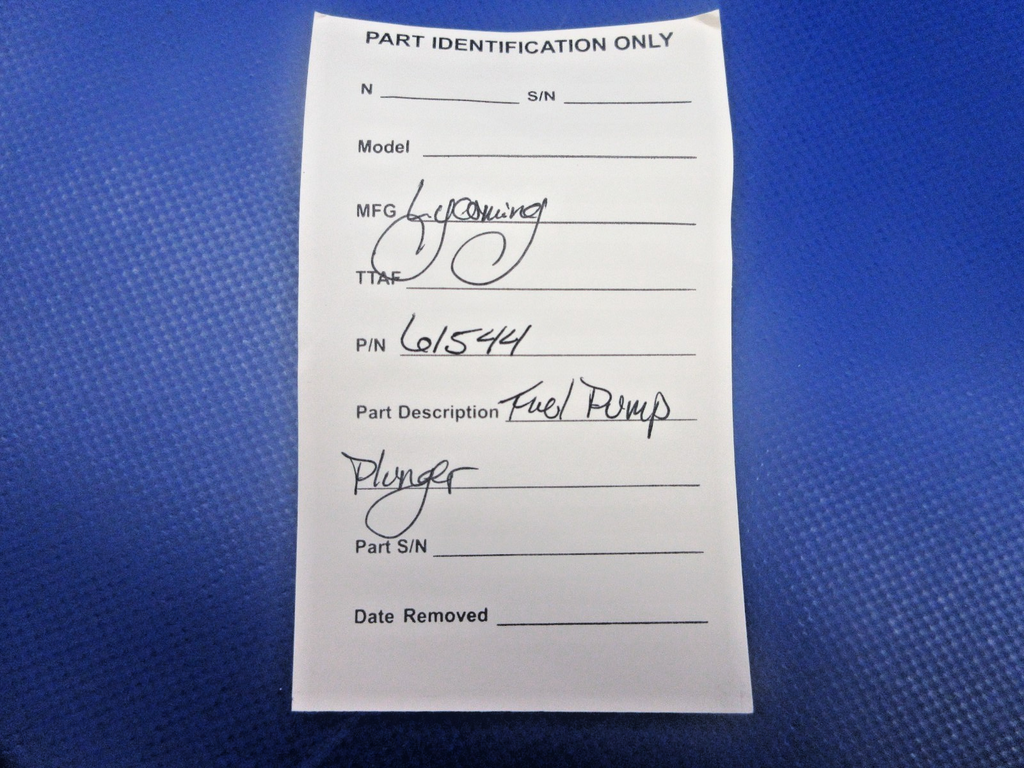 PART IDENTIFICATION ONLY
N S/N
Model
MFG Lycoming
TTAF
P/N 61544
Part Description Fuel Pump
Plunger
Part S/N
Date Removed